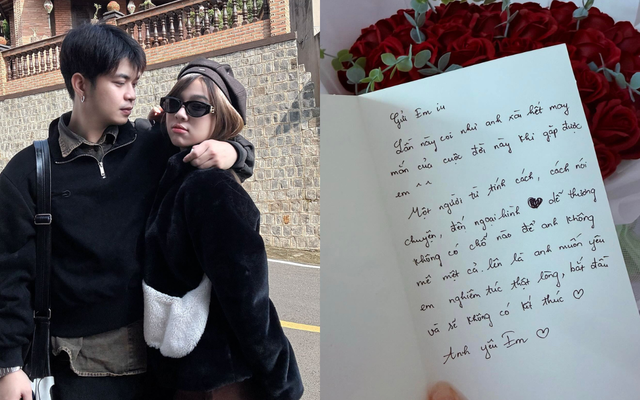 Gửi Em iu
Lần này coi như anh xài hết may
mắn của cuộc đời này khi gặp được
em ^^
Một người từ tính cách, cách nói
chuyện, đến ngoại hình dễ thương
không có chỗ nào để anh không
mê một cả. lên là anh muốn yêu
em nghiêm túc thật lòng, bắt đầu
và sẽ không có kết thúc ♡
Anh yêu Em ♡